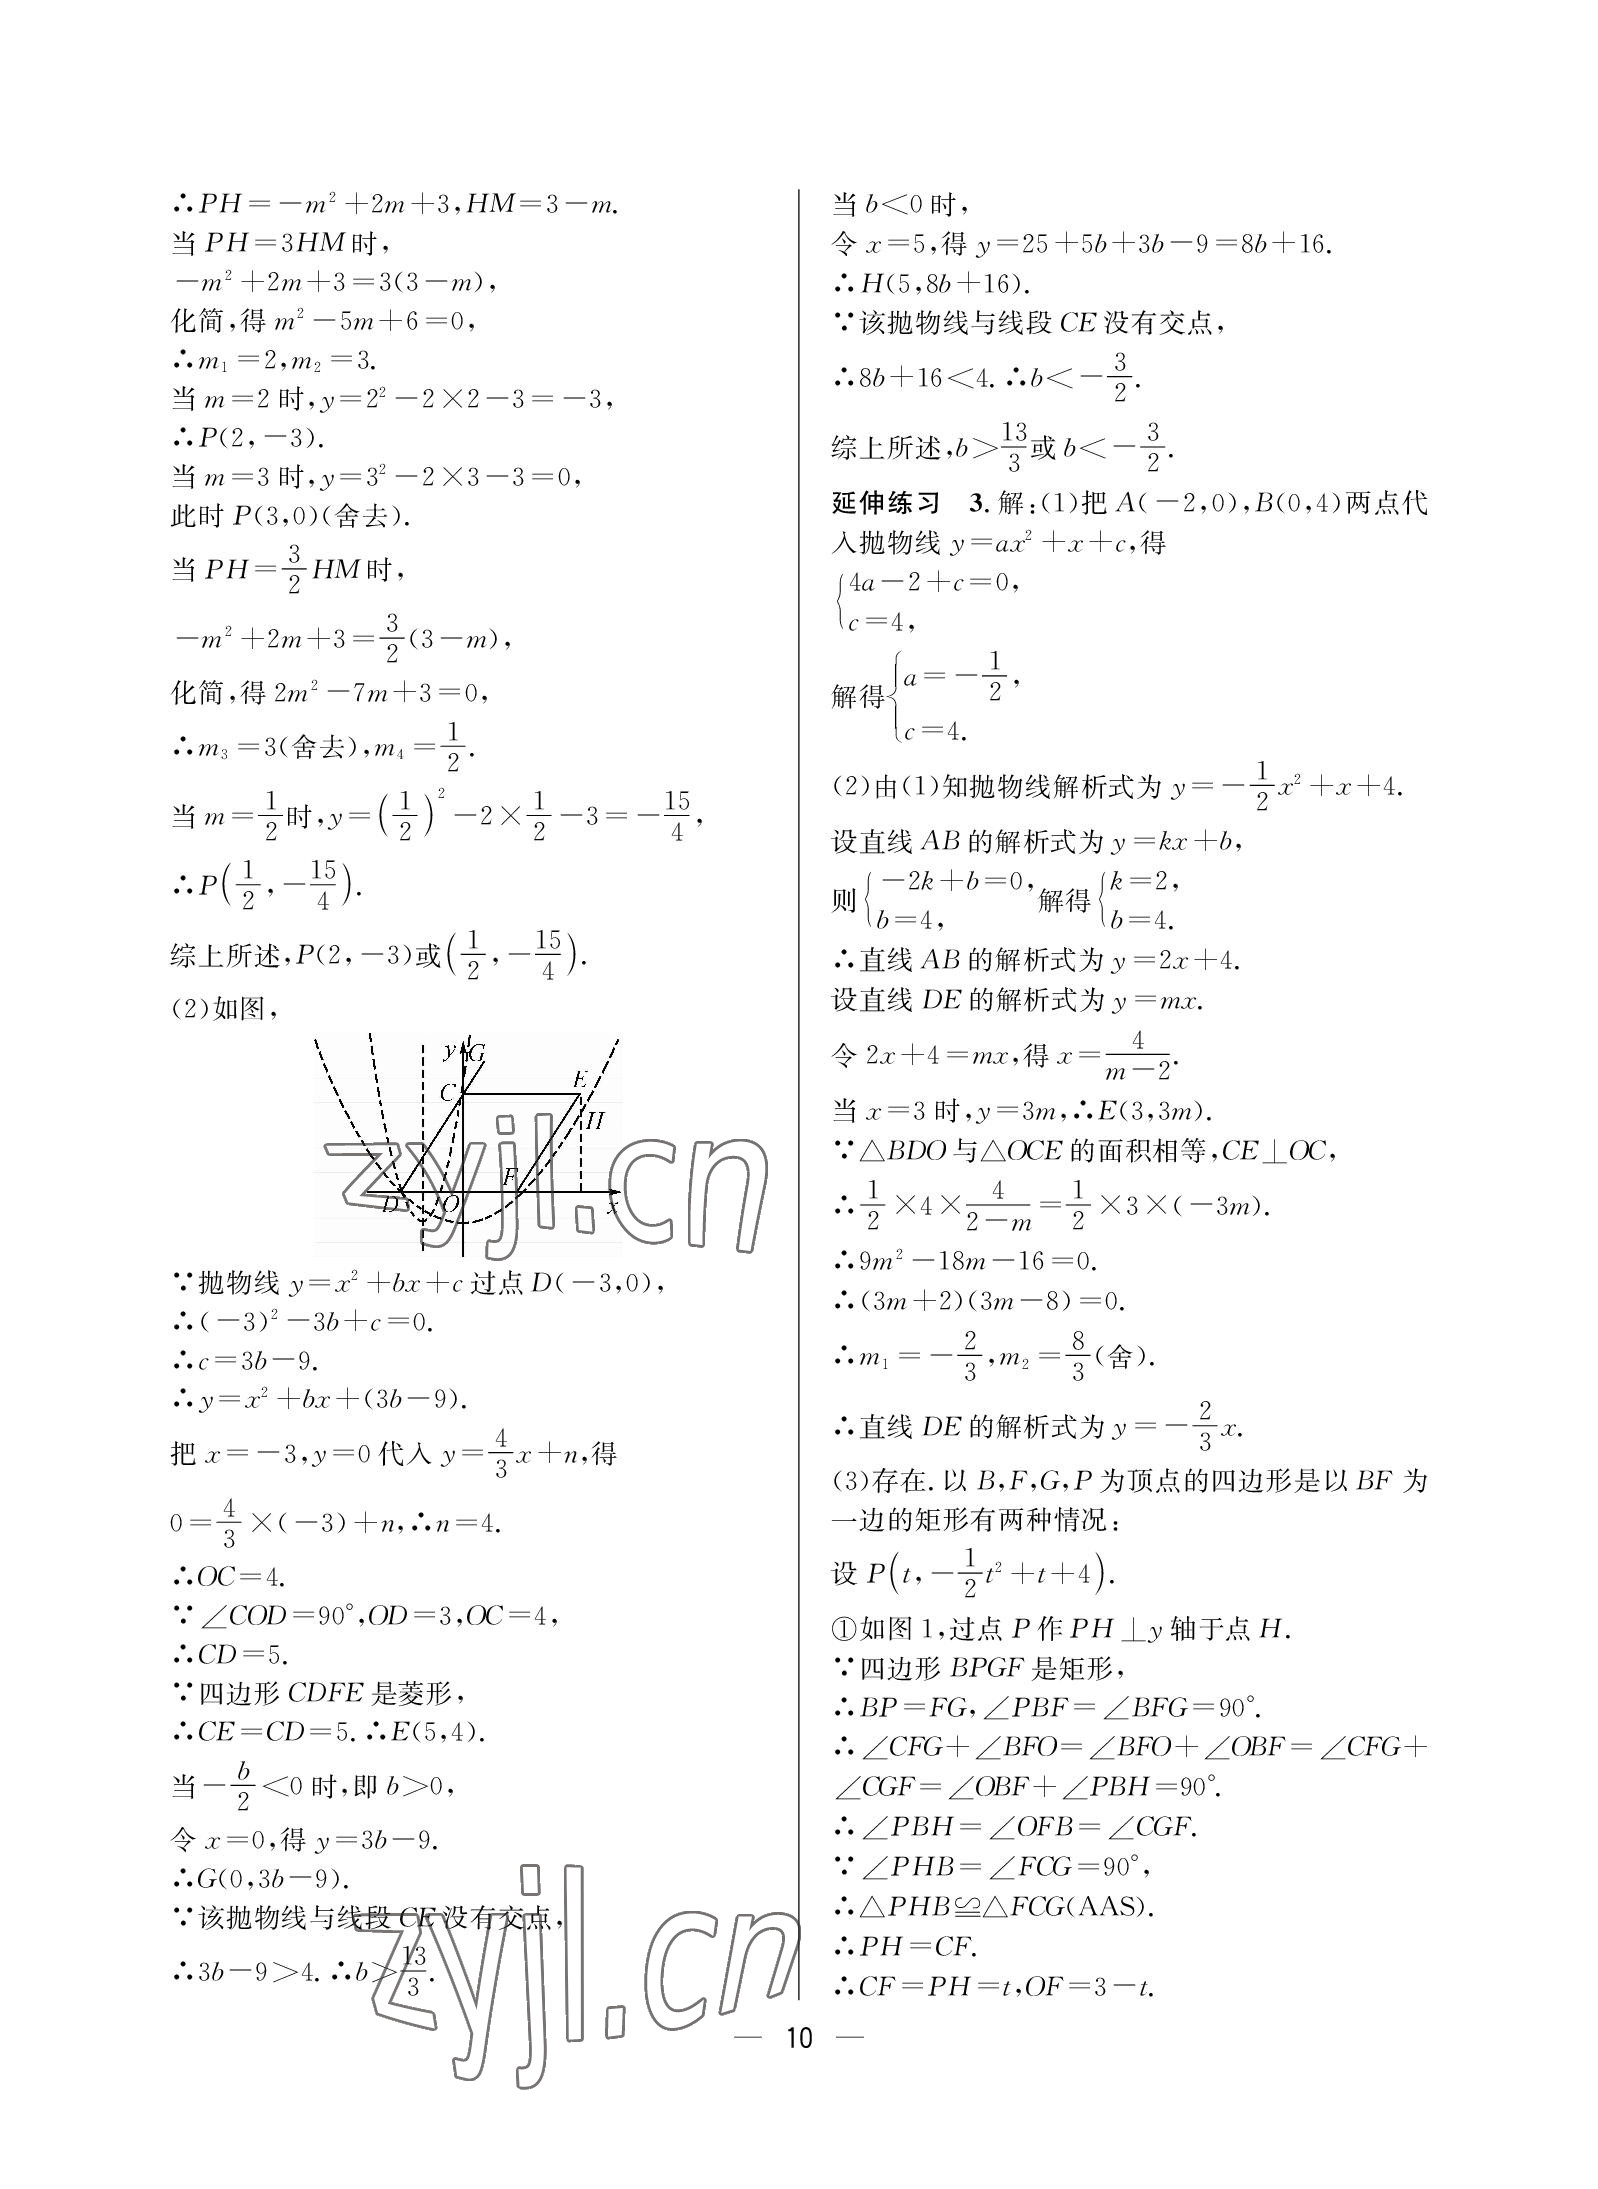 ∴PH=-m²+2m+3,HM=3-m.
当 PH=3HM时,
-m²+2m+3=3(3-m),
化简,得 m²-5m+6=0,
∴m₁=2,m₂=3.
当 m=2 时,y=2²-2×2-3=-3,
∴P(2,-3).
当 m=3 时,y=3²-2×3-3=0,
此时 P(3,0)(舍去).
当 PH=3/2 HM时,
-m²+2m+3=3/2(3-m),
化简,得 2m²-7m+3=0,
∴m₃=3(舍去),m₄=1/2.
当 m=1/2时,y=(1/2)²-2×1/2-3=-15/4,
∴P(1/2,-15/4).
综上所述,P(2,-3)或(1/2,-15/4).
(2)如图,
y G
C E
H
F
D O x
∵抛物线 y=x²+bx+c 过点 D(-3,0),
∴(-3)²-3b+c=0.
∴c=3b-9.
∴y=x²+bx+(3b-9).
把 x=-3,y=0 代入 y=4/3x+n,得
0=4/3×(-3)+n,∴n=4.
∴OC=4.
∵∠COD=90°,OD=3,OC=4,
∴CD=5.
∵四边形 CDFE 是菱形,
∴CE=CD=5.∴E(5,4).
当-b/2<0 时,即 b>0,
令 x=0,得 y=3b-9.
∴G(0,3b-9).
∵该抛物线与线段 CE 没有交点,
∴3b-9>4.∴b>13/3.
当 b<0 时,
令 x=5,得 y=25+5b+3b-9=8b+16.
∴H(5,8b+16).
∵该抛物线与线段 CE 没有交点,
∴8b+16<4.∴b<-3/2.
综上所述,b>13/3或 b<-3/2.
延伸练习 3.解:(1)把 A(-2,0),B(0,4)两点代
入抛物线 y=ax²+x+c,得
{4a-2+c=0,
c=4,
解得{a=-1/2,
c=4.
(2)由(1)知抛物线解析式为 y=-1/2x²+x+4.
设直线 AB 的解析式为 y=kx+b,
则{-2k+b=0, b=4, 解得{k=2, b=4.
∴直线 AB 的解析式为 y=2x+4.
设直线 DE 的解析式为 y=mx.
令 2x+4=mx,得 x=4/(m-2).
当 x=3 时,y=3m,∴E(3,3m).
∵△BDO 与△OCE 的面积相等,CE⊥OC,
∴1/2×4×4/(2-m)=1/2×3×(-3m).
∴9m²-18m-16=0.
∴(3m+2)(3m-8)=0.
∴m₁=-2/3,m₂=8/3(舍).
∴直线 DE 的解析式为 y=-2/3x.
(3)存在.以 B,F,G,P 为顶点的四边形是以 BF 为
一边的矩形有两种情况:
设 P(t,-1/2t²+t+4).
①如图 1,过点 P 作 PH⊥y 轴于点 H.
∵四边形 BPGF 是矩形,
∴BP=FG,∠PBF=∠BFG=90°.
∴∠CFG+∠BFO=∠BFO+∠OBF=∠CFG+
∠CGF=∠OBF+∠PBH=90°.
∴∠PBH=∠OFB=∠CGF.
∵∠PHB=∠FCG=90°,
∴△PHB≌△FCG(AAS).
∴PH=CF.
∴CF=PH=t,OF=3-t.
— 10 —
zyjl.cn
zyjl.cn